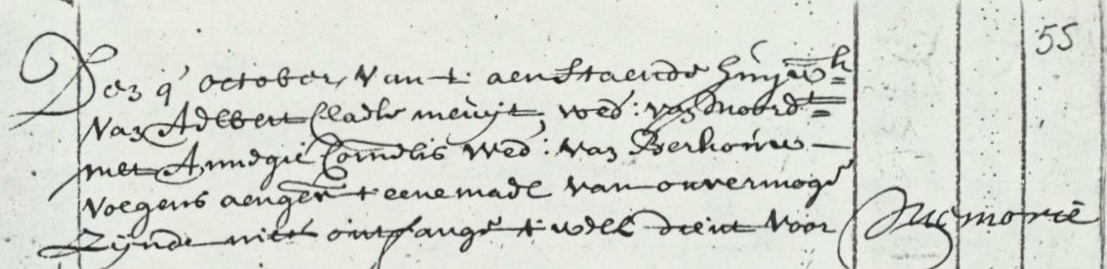 55
Den 9' october, van t. aenstaende huwe=
Van Adlbert Claesz wed: van Noord=
met Annetgie Cornelis Wed: van Berkouw —
volgens aengev t'eenemael van onvermoge
Zijnde niet ontfange t welk dient voor memorie